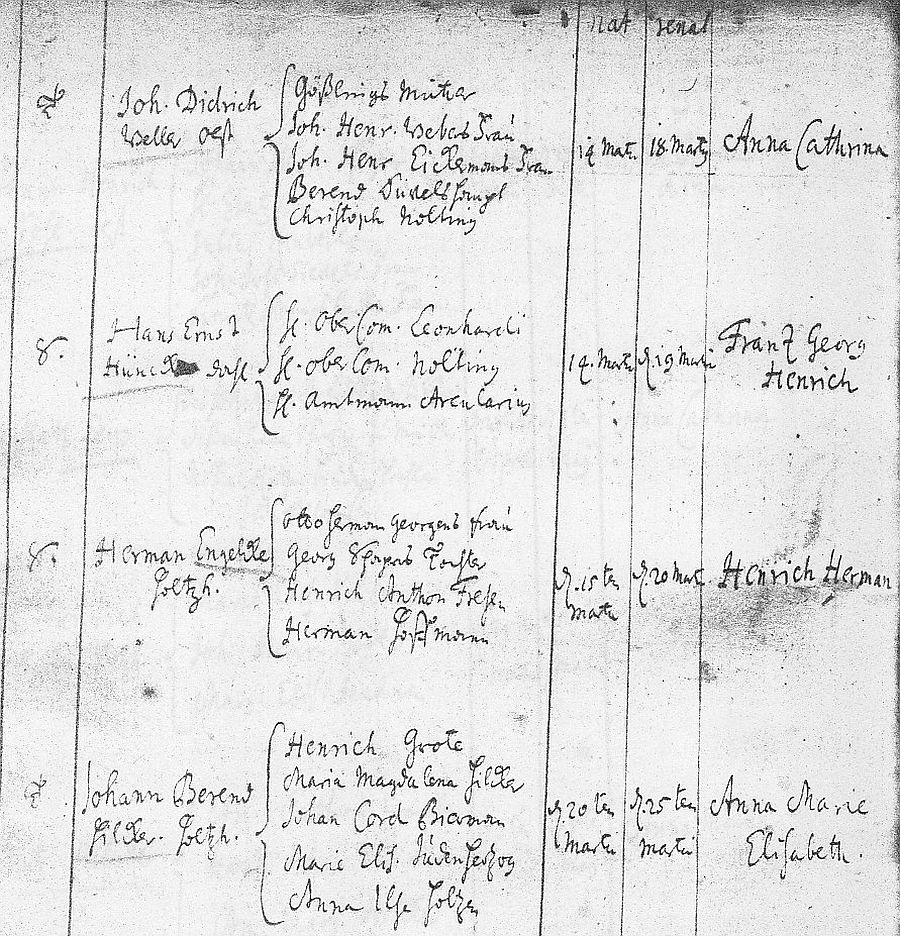 nat renat
Joh. Didrich
Weller Oest
Gößlings Mutter
Joh. Henr. Webers Frau
Joh. Henr Eickermans Frau
Berend
Christoph Nolting
14 Mart. 18. Marty Anna Cathrina
8. Hans Ernst
Hüncke
H. Ober Com. Leonhardi
H. ober Com. Nolting
H. Ambtmann Arcularius
14. Marti d. 19 Marti Frantz Georg
Henrich
8. Herman Engelke
Holtzh.
Otto Herman Georgens frau
Georg Tochter
Henrich Anthon Fresen
Herman Hoffmann
d. 15 ten
Marti
d. 20 Mart. Henrich Herman
Johann Berend
Hilcker. Holtzh.
Henrich Grote
Maria Magdalena Hilcker
Johan Cord Bierman
Marie Elis. Südenhertzog
Anna Ilse
d. 20 ten
Marti
d. 25 ten
Marti
Anna Marie
Elisabeth.